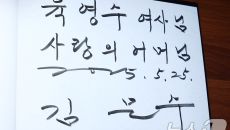 육영수 여사님
사랑의 어머님
5. 5. 25.
김